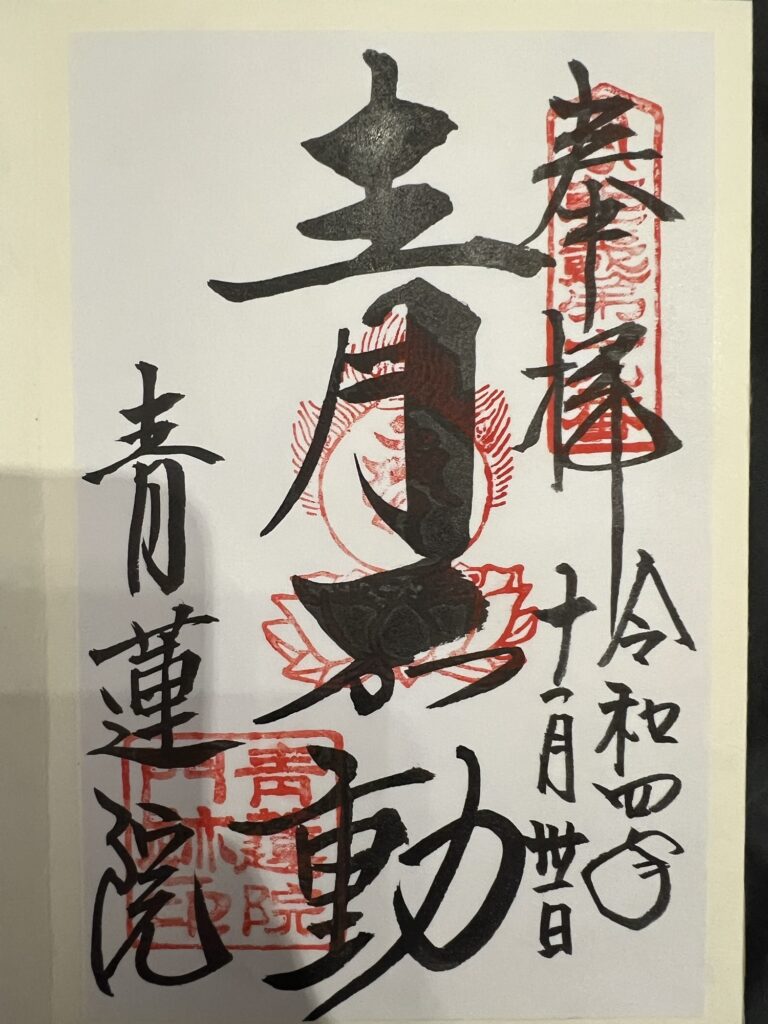 奉拝
令和四年
十一月卅日
青不動
青蓮院
青蓮院
門跡印